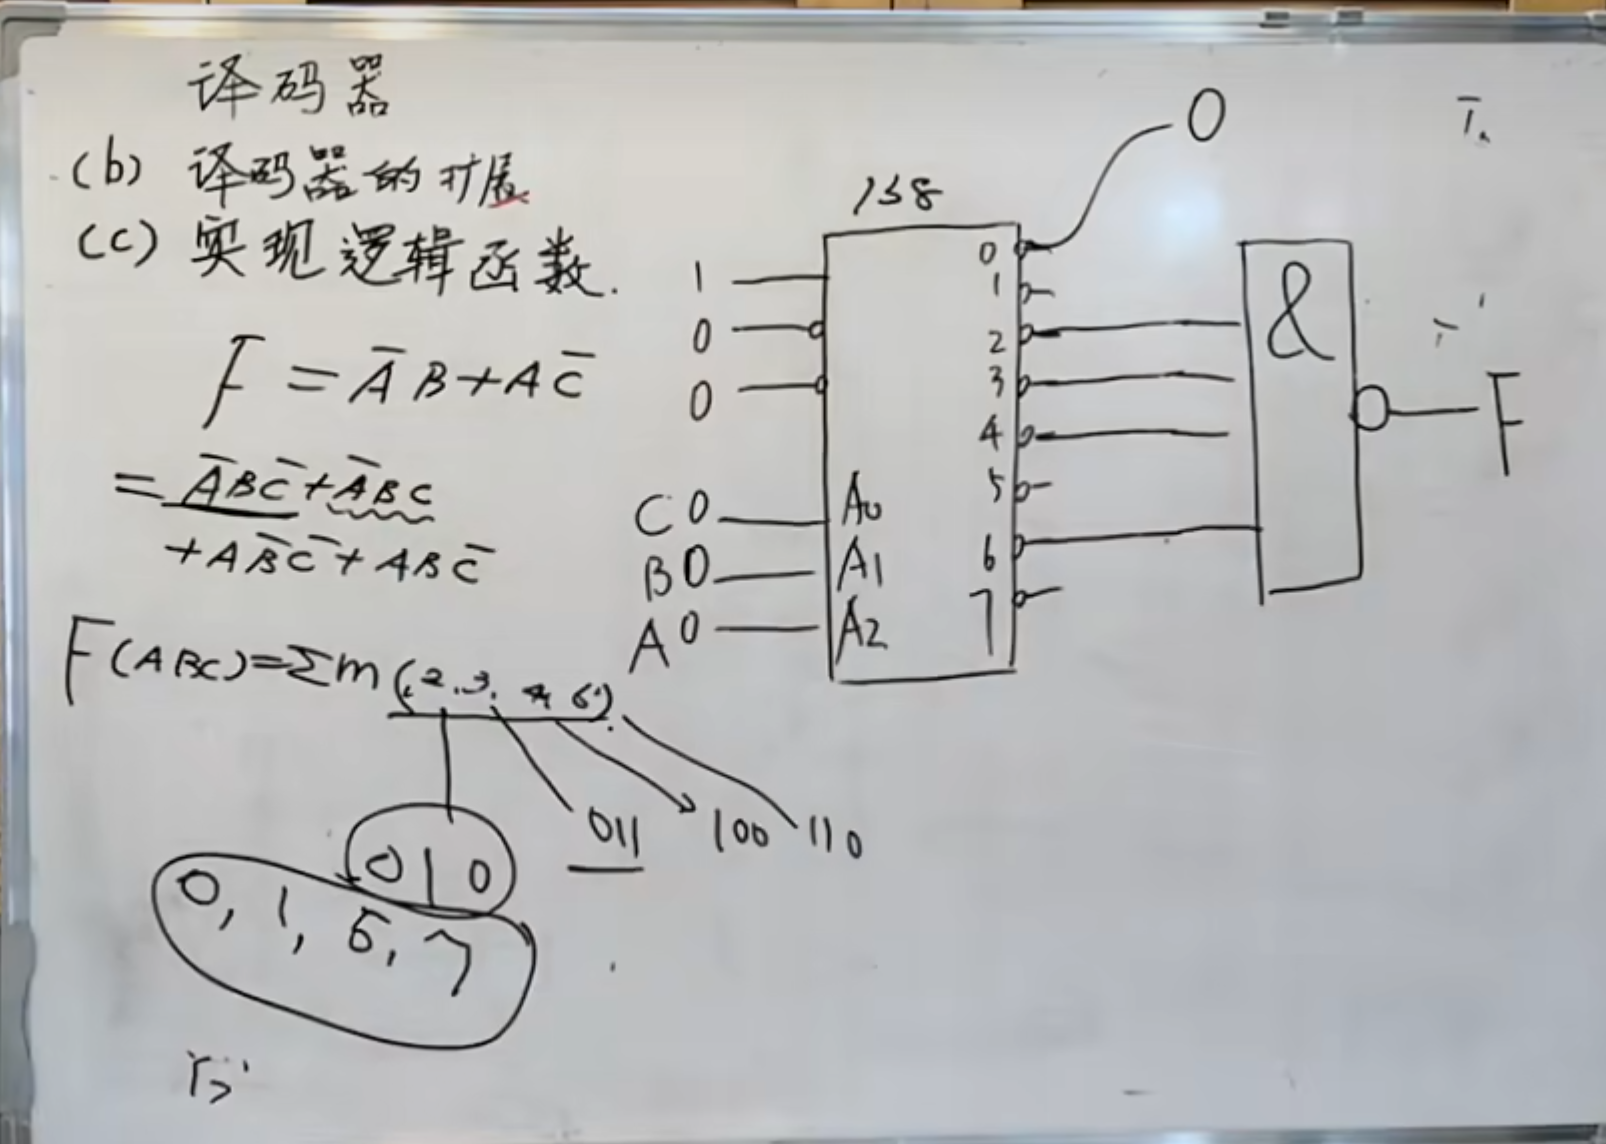 译码器
(b) 译码器的扩展
(c) 实现逻辑函数.
F = A̅B+AC̅
= A̅BC̅+A̅BC
+AB̅C̅+ABC̅
F(ABC)=Σm(2,3,4,6)
010
011
100
110
0,1,5,7
138
1
0
0
C 0 A0
B 0 A1
A 0 A2
0
1
2
3
4
5
6
7
0
&
F